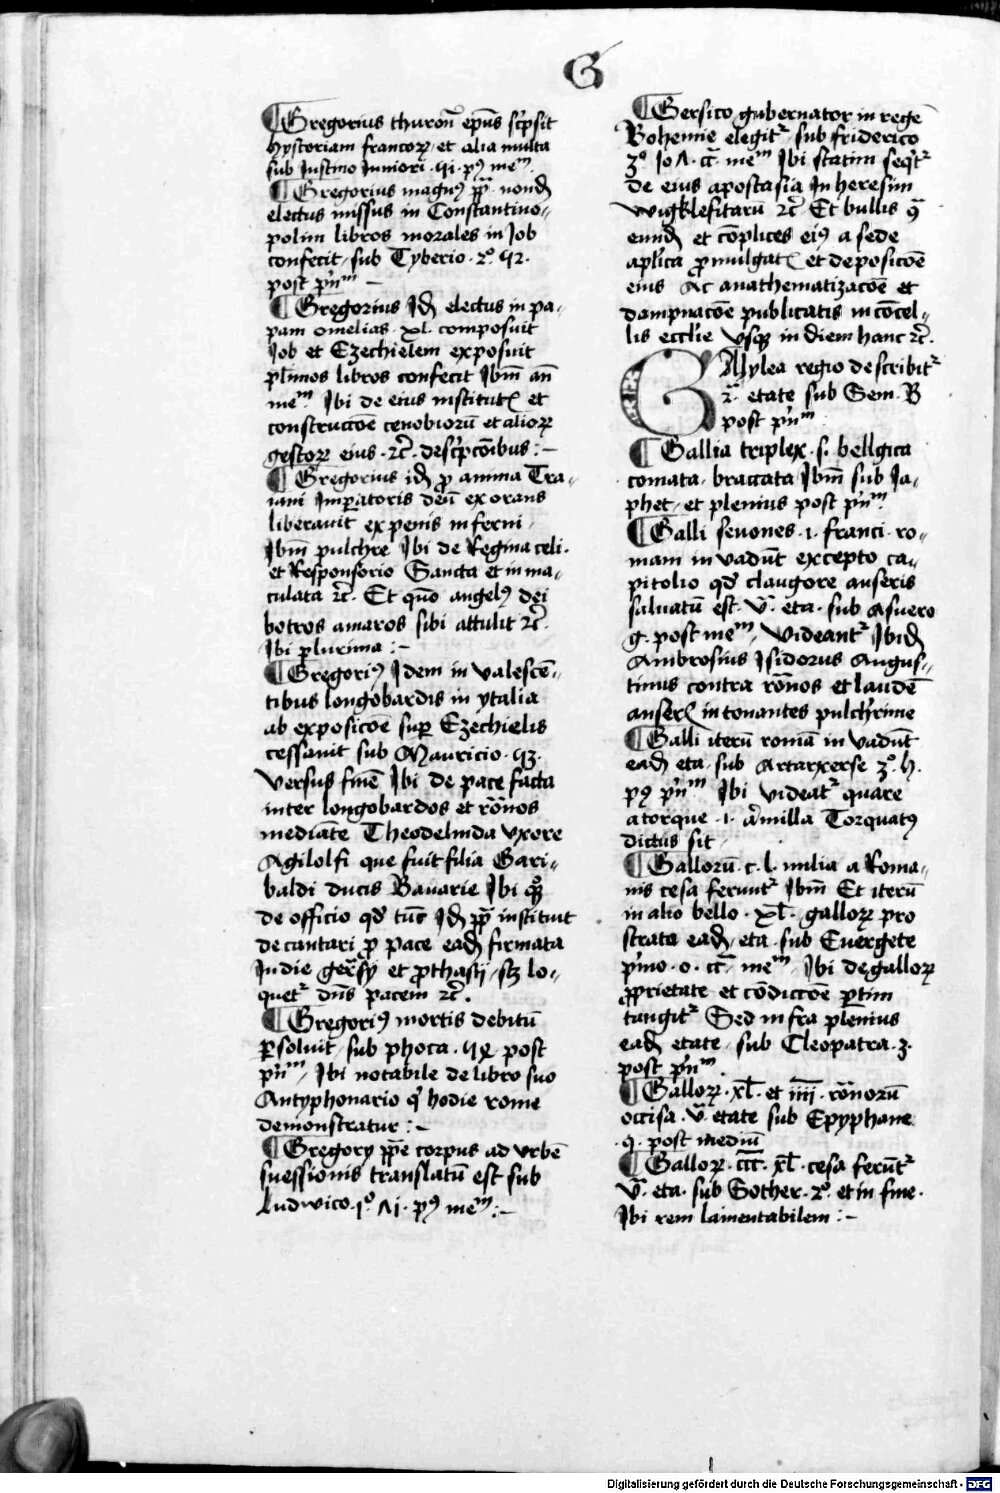 G
¶ Gregorius thuroñ ep̄us sc̄psit
hystoriam francoꝝ et alia multa
sub Justino Juniori · 91 · pꝯ meᵐ
¶ Gregorius magnꝯ pp̄ · nondū
electus missus in Constantino-
polim libros morales in Job
confecit sub Tyberio · 2º · 92 ·
post pn̄ᵐ —
¶ Gregorius Jdē electus in pa-
pam omelias · xl · composuit
Job et Ezechielem exposuit
pl̄imos libros confecit Jbm̄ an̄
meᵐ Jbi de eius institutꝭ et
construccōe cenobiorū et alioꝝ
gestoꝝ eius · ⁊c̄ · desc̄pcōibus :—
¶ Gregorius idē ꝓ anima Tra-
iani Imꝑatoris deū exorans
liberavit ex penis inferni ·
Jbm̄ pulchre Jbi de Regina celi ·
et Responsorio Sancta et inma-
culata ⁊c̄ · Et quō angelꝯ dei
botros amaros sibi attulit ⁊c̄ ·
Jbi ꝑlurima :—
¶ Gregoriꝯ Jdem in valescē-
tibus longobardis in ytalia
ab exposicōe suꝑ Ezechielis
cessavit sub Mauricio · 93 ·
versus finē Jbi de pace facta
inter longobardos et rōnos
mediāte Theodelinda vxore
Agilolfi que fuit filia Gari-
baldi ducis Bavarie Jbi
de officio qd̄ tūc Jdē pp̄ instituit
decantari ꝓ pace eadē firmata
In die et ꝓthasij · sꝫ lo-
quetʳ dn̄s pacem ⁊c̄ ·
¶ Gregoriꝯ mortis debitū
ꝑsoluit · sub phoca · post
pn̄ᵐ · Jbi notabile de libro suo
Antyphonario qͥ hodie rome
demonstratur :—
¶ Gregory pp̄e corpus ad vrbē
suessionis translatū est sub
Ludwico · 1º · Λ1 · pꝯ meᵐ :—
¶ Gersico gubernator in regē
Bohemie elegitʳ · sub friderico
3º · meᵐ Jbi statim seqͥtʳ
de eius apostasia In heresim
wigklefitarū ⁊c̄ Et bullis
eundē et cōplices eiꝯ a sede
apl̄ica ꝓmulgatꝭ et deposicōe
eius Ac anathematizacōe et
dampnacōe publicatis in cōcel-
lis eccl̄ie vsqꝫ in diem hanc ⁊c̄ ·
GAlylea regio describitʳ
2ᵃ · etate sub Sem · B
post pn̄ᵐ
¶ Gallia triplex · s · bellgica
comata · braccata Jbm̄ sub Ja-
phet · et plenius post pn̄ᵐ
¶ Galli senones · i · franci · ro-
mam in vadūt excepto ca-
pitolio qd̄ claugore anseris
saluatū est · vᵃ · eta · sub Asuero
g · post meᵐ · Videantʳ Jbidē
Ambrosius Isidorus Augus-
tinus contra rōnos et laudē
anserꝭ intonantes pulchrime
¶ Galli iterū romā in vadūt
eadē eta · sub Artarxerse 3º · h ·
pꝯ pn̄ᵐ Jbi videatʳ quare
a torque · i · armilla Torquatꝯ
dictus sit ·
¶ Gallorū · c · l · milia a Roma-
nis cesa feruntʳ Jbm̄ Et iterū
in alio bello · xl̄ · galloꝝ pro
strata eadē · eta · sub Evergete
pͥmo · o · meᵐ · Jbi de galloꝝ
ꝓprietate et cōdiccōe ꝑtim
tangitʳ Sed infra plenius
eadē etate · sub Cleopatra · 3 ·
post pn̄ᵐ ·
¶ Galloꝝ · xl̄ · et iiii̅ · rōnorū
occisa · vᵃ etate sub Epyphane
· q · post mediū
¶ Galloꝝ · ccc̄ · xl̄ · cesa ferūtʳ
vᵃ · eta · sub Sother · 2º · et in fine ·
Jbi rem lamentabilem :—
Digitalisierung gefördert durch die Deutsche Forschungsgemeinschaft - DFG